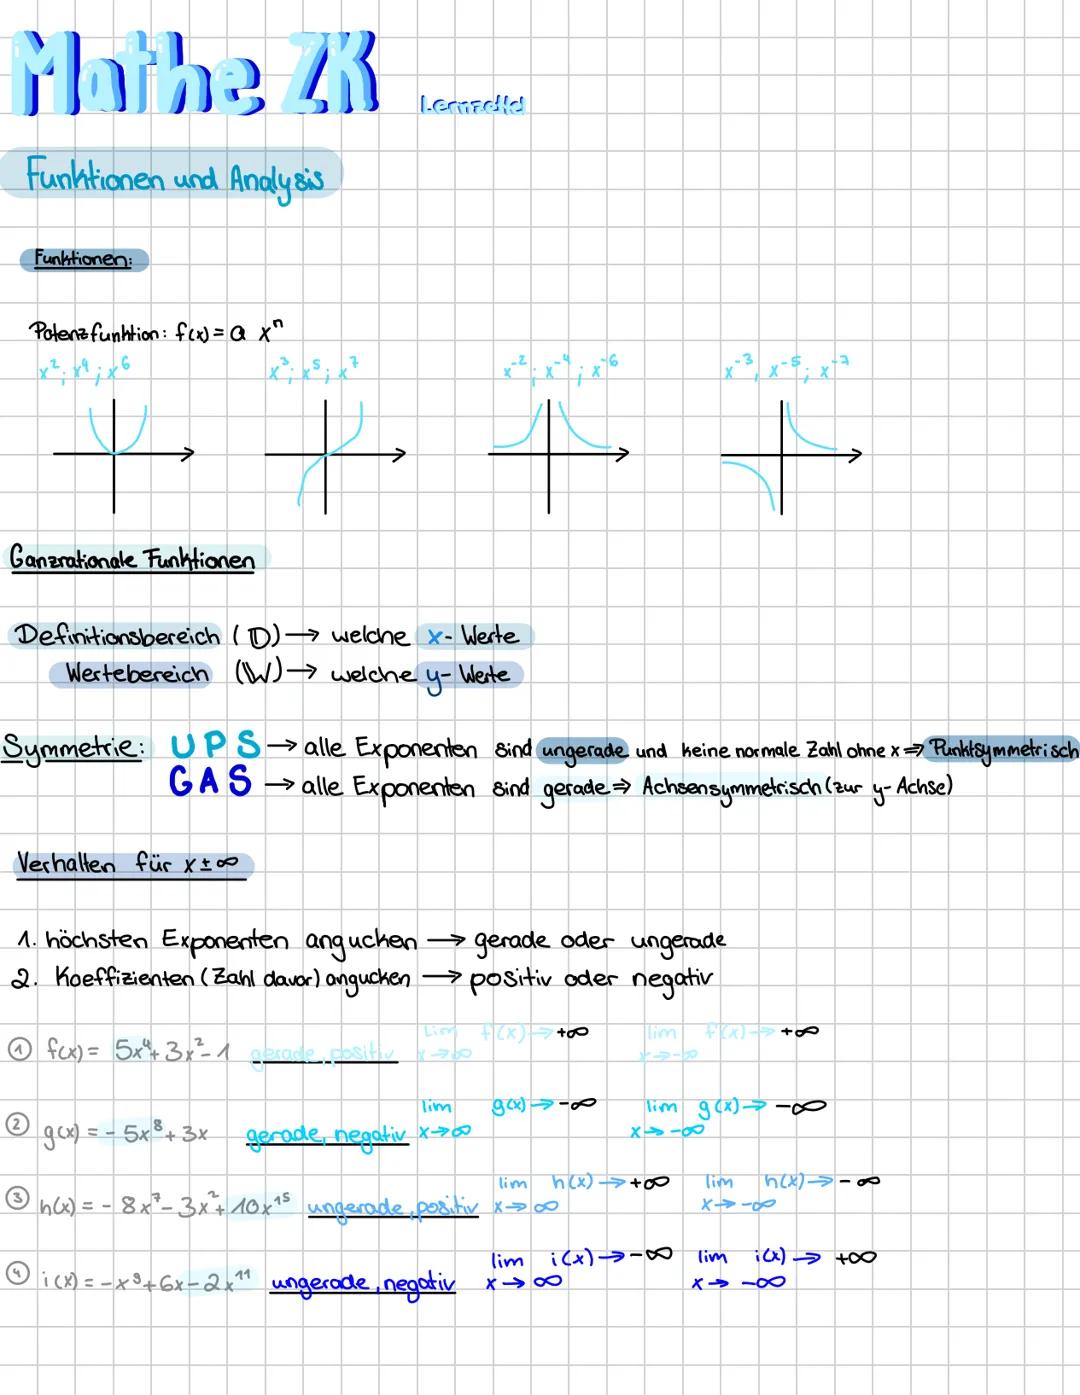 Mathe ZK Lernzettel
Funktionen und Analysis
Funktionen:
Potenzfunktion: f(x) = a xⁿ
x²; x⁴; x⁶ x³; x⁵; x⁷ x⁻²; x⁻⁴; x⁻⁶ x⁻³, x⁻⁵; x⁻⁷
Ganzrationale Funktionen
Definitionsbereich (D) → welche x-Werte
Wertebereich (W) → welche y-Werte
Symmetrie: UPS → alle Exponenten sind ungerade und keine normale Zahl ohne x ⇒ Punktsymmetrisch
GAS → alle Exponenten sind gerade ⇒ Achsensymmetrisch (zur y-Achse)
Verhalten für x ± ∞
1. höchsten Exponenten angucken → gerade oder ungerade
2. Koeffizienten (Zahl davor) angucken → positiv oder negativ
① f(x) = 5x⁴ + 3x² - 1 gerade, positiv lim x→∞ f(x) → +∞ lim x→-∞ f(x) → +∞
② g(x) = - 5x⁸ + 3x gerade, negativ lim x→∞ g(x) → -∞ lim x→-∞ g(x) → -∞
③ h(x) = - 8x⁷ - 3x² + 10x¹⁵ ungerade, positiv lim x→∞ h(x) → +∞ lim x→-∞ h(x) → -∞
④ i(x) = -x⁹ + 6x - 2x¹¹ ungerade, negativ lim x→∞ i(x) → -∞ lim x→-∞ i(x) → +∞